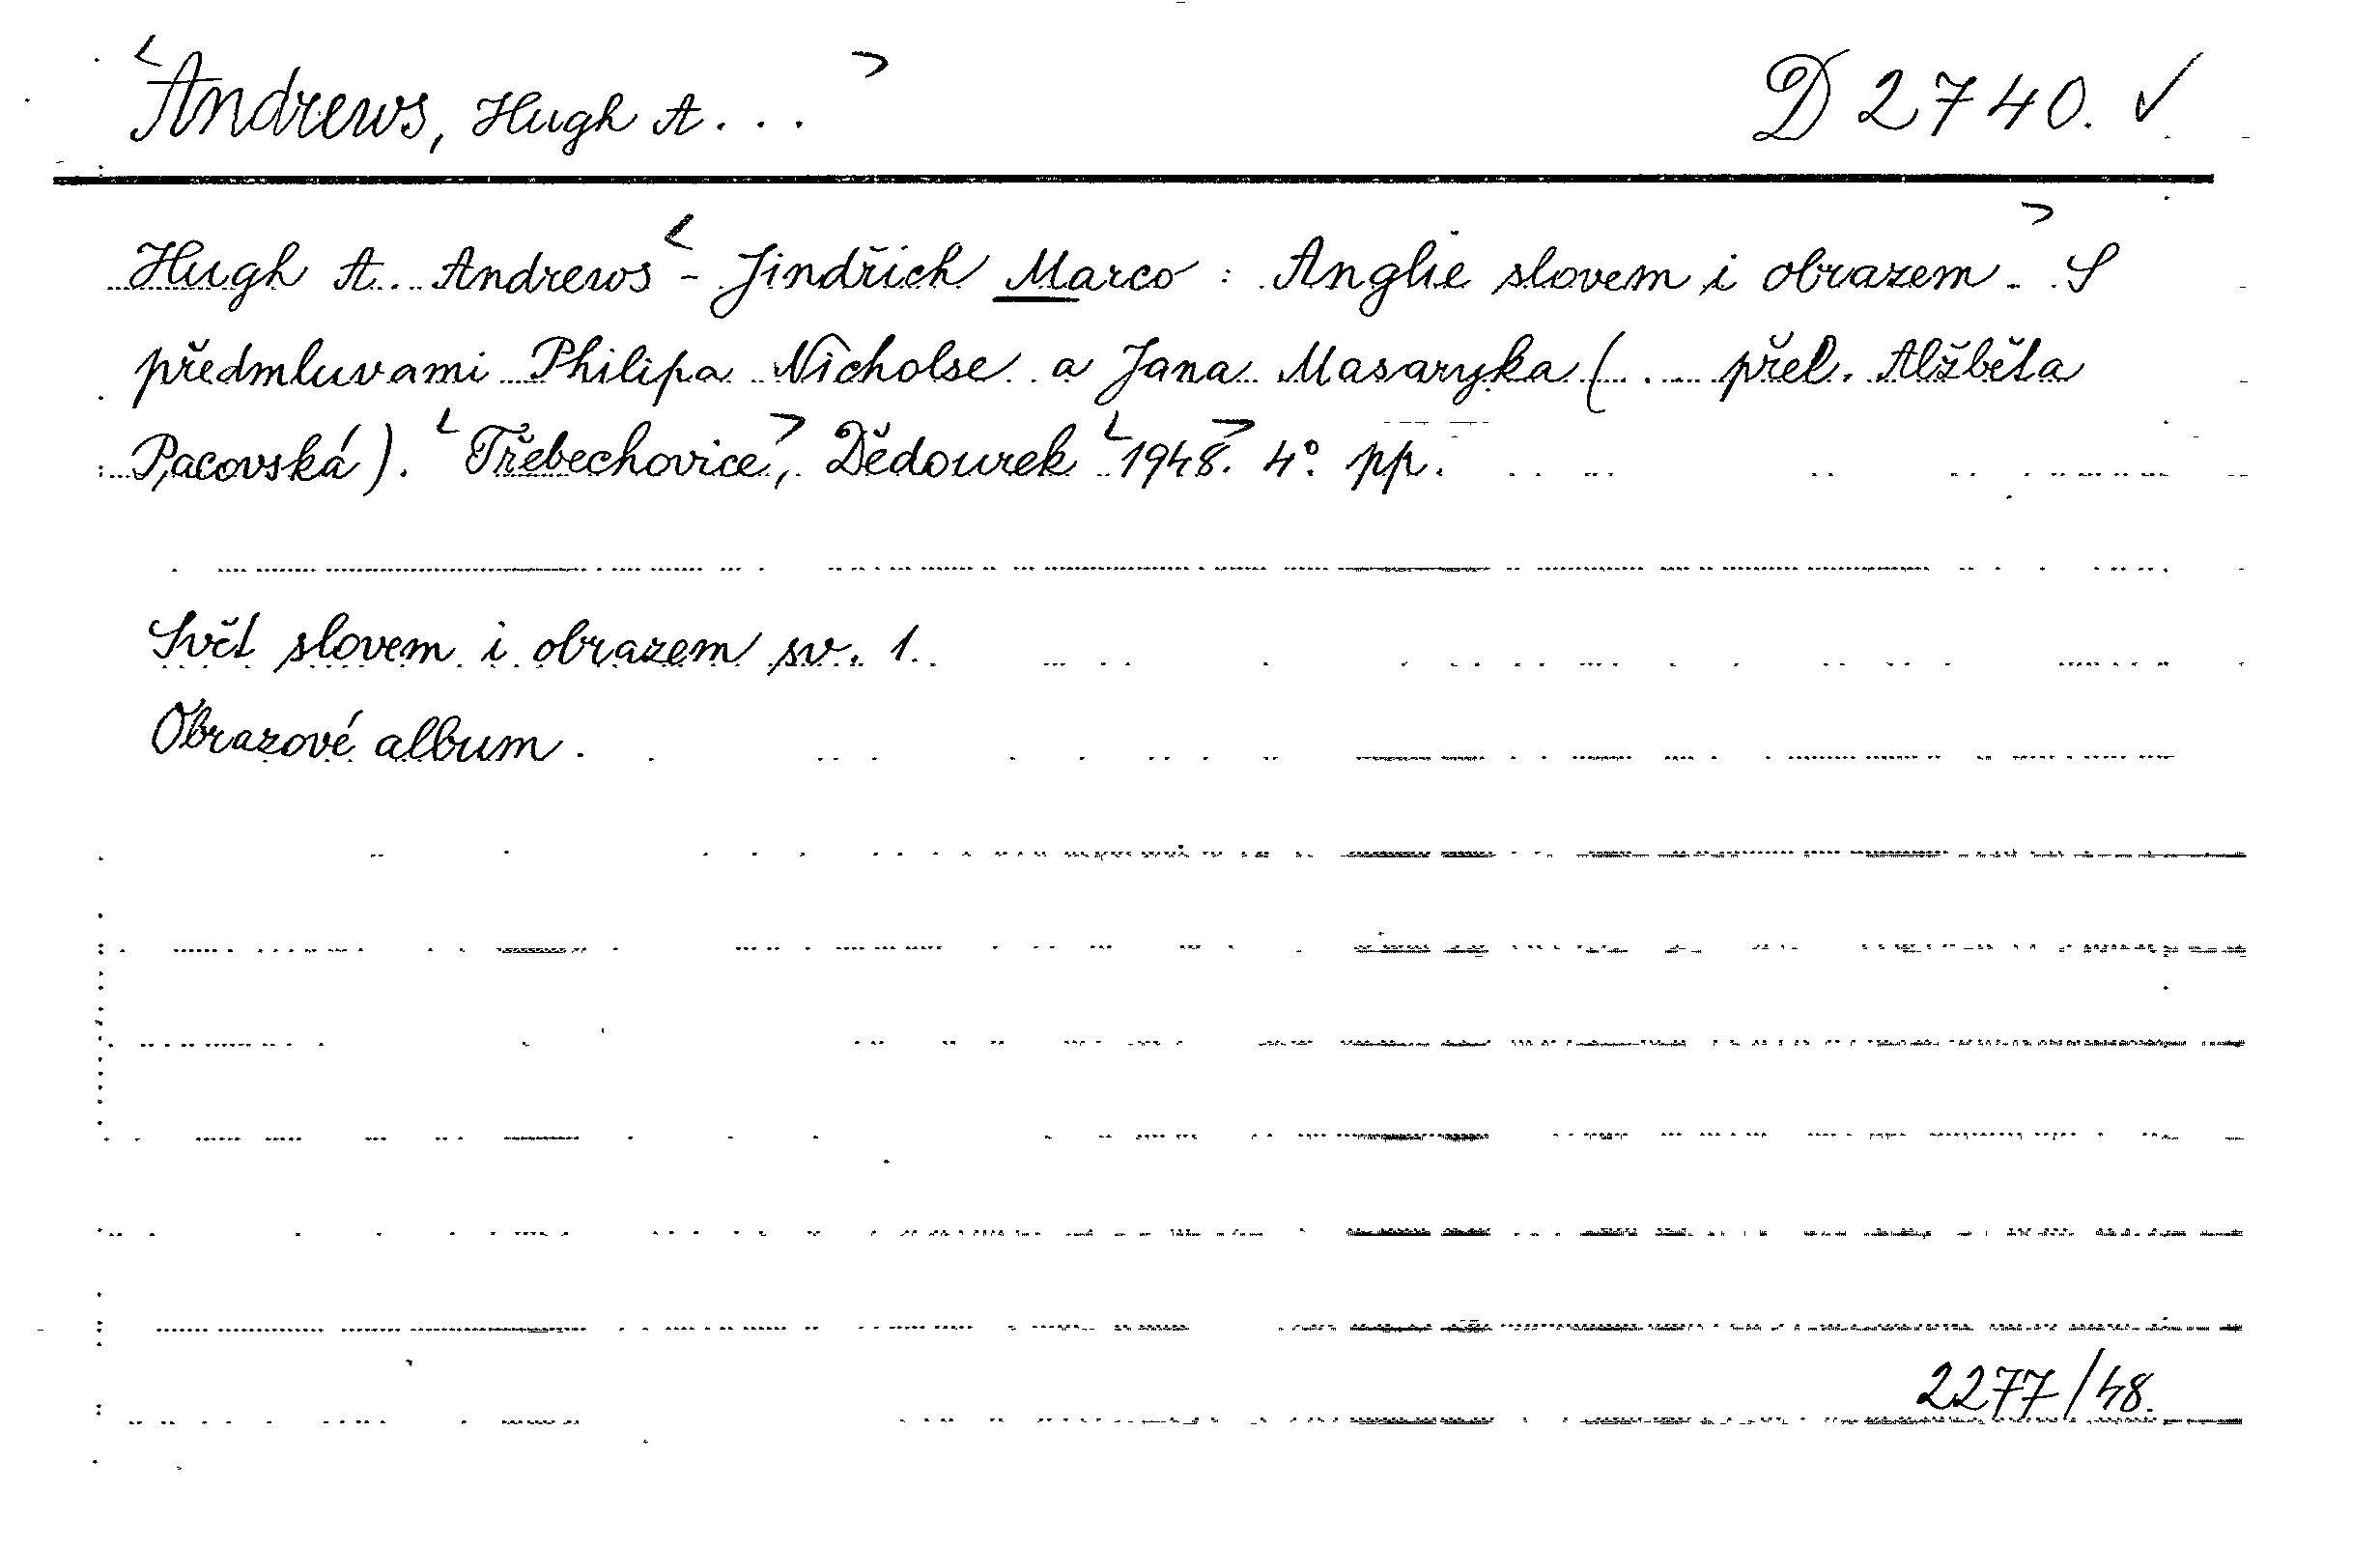 <Andrews, Hugh A...> D 2740. ✓
Hugh A. Andrews <- Jindřich Marco : Anglie slovem i obrazem>. S
předmluvami Philipa Nicholse a Jana Masaryka (... přel. Alžběta
Pacovská). <Třebechovice>, Dědourek <1948>. 4°. pp.
Svět slovem i obrazem sv. 1.
Obrazové album.
2277/48.